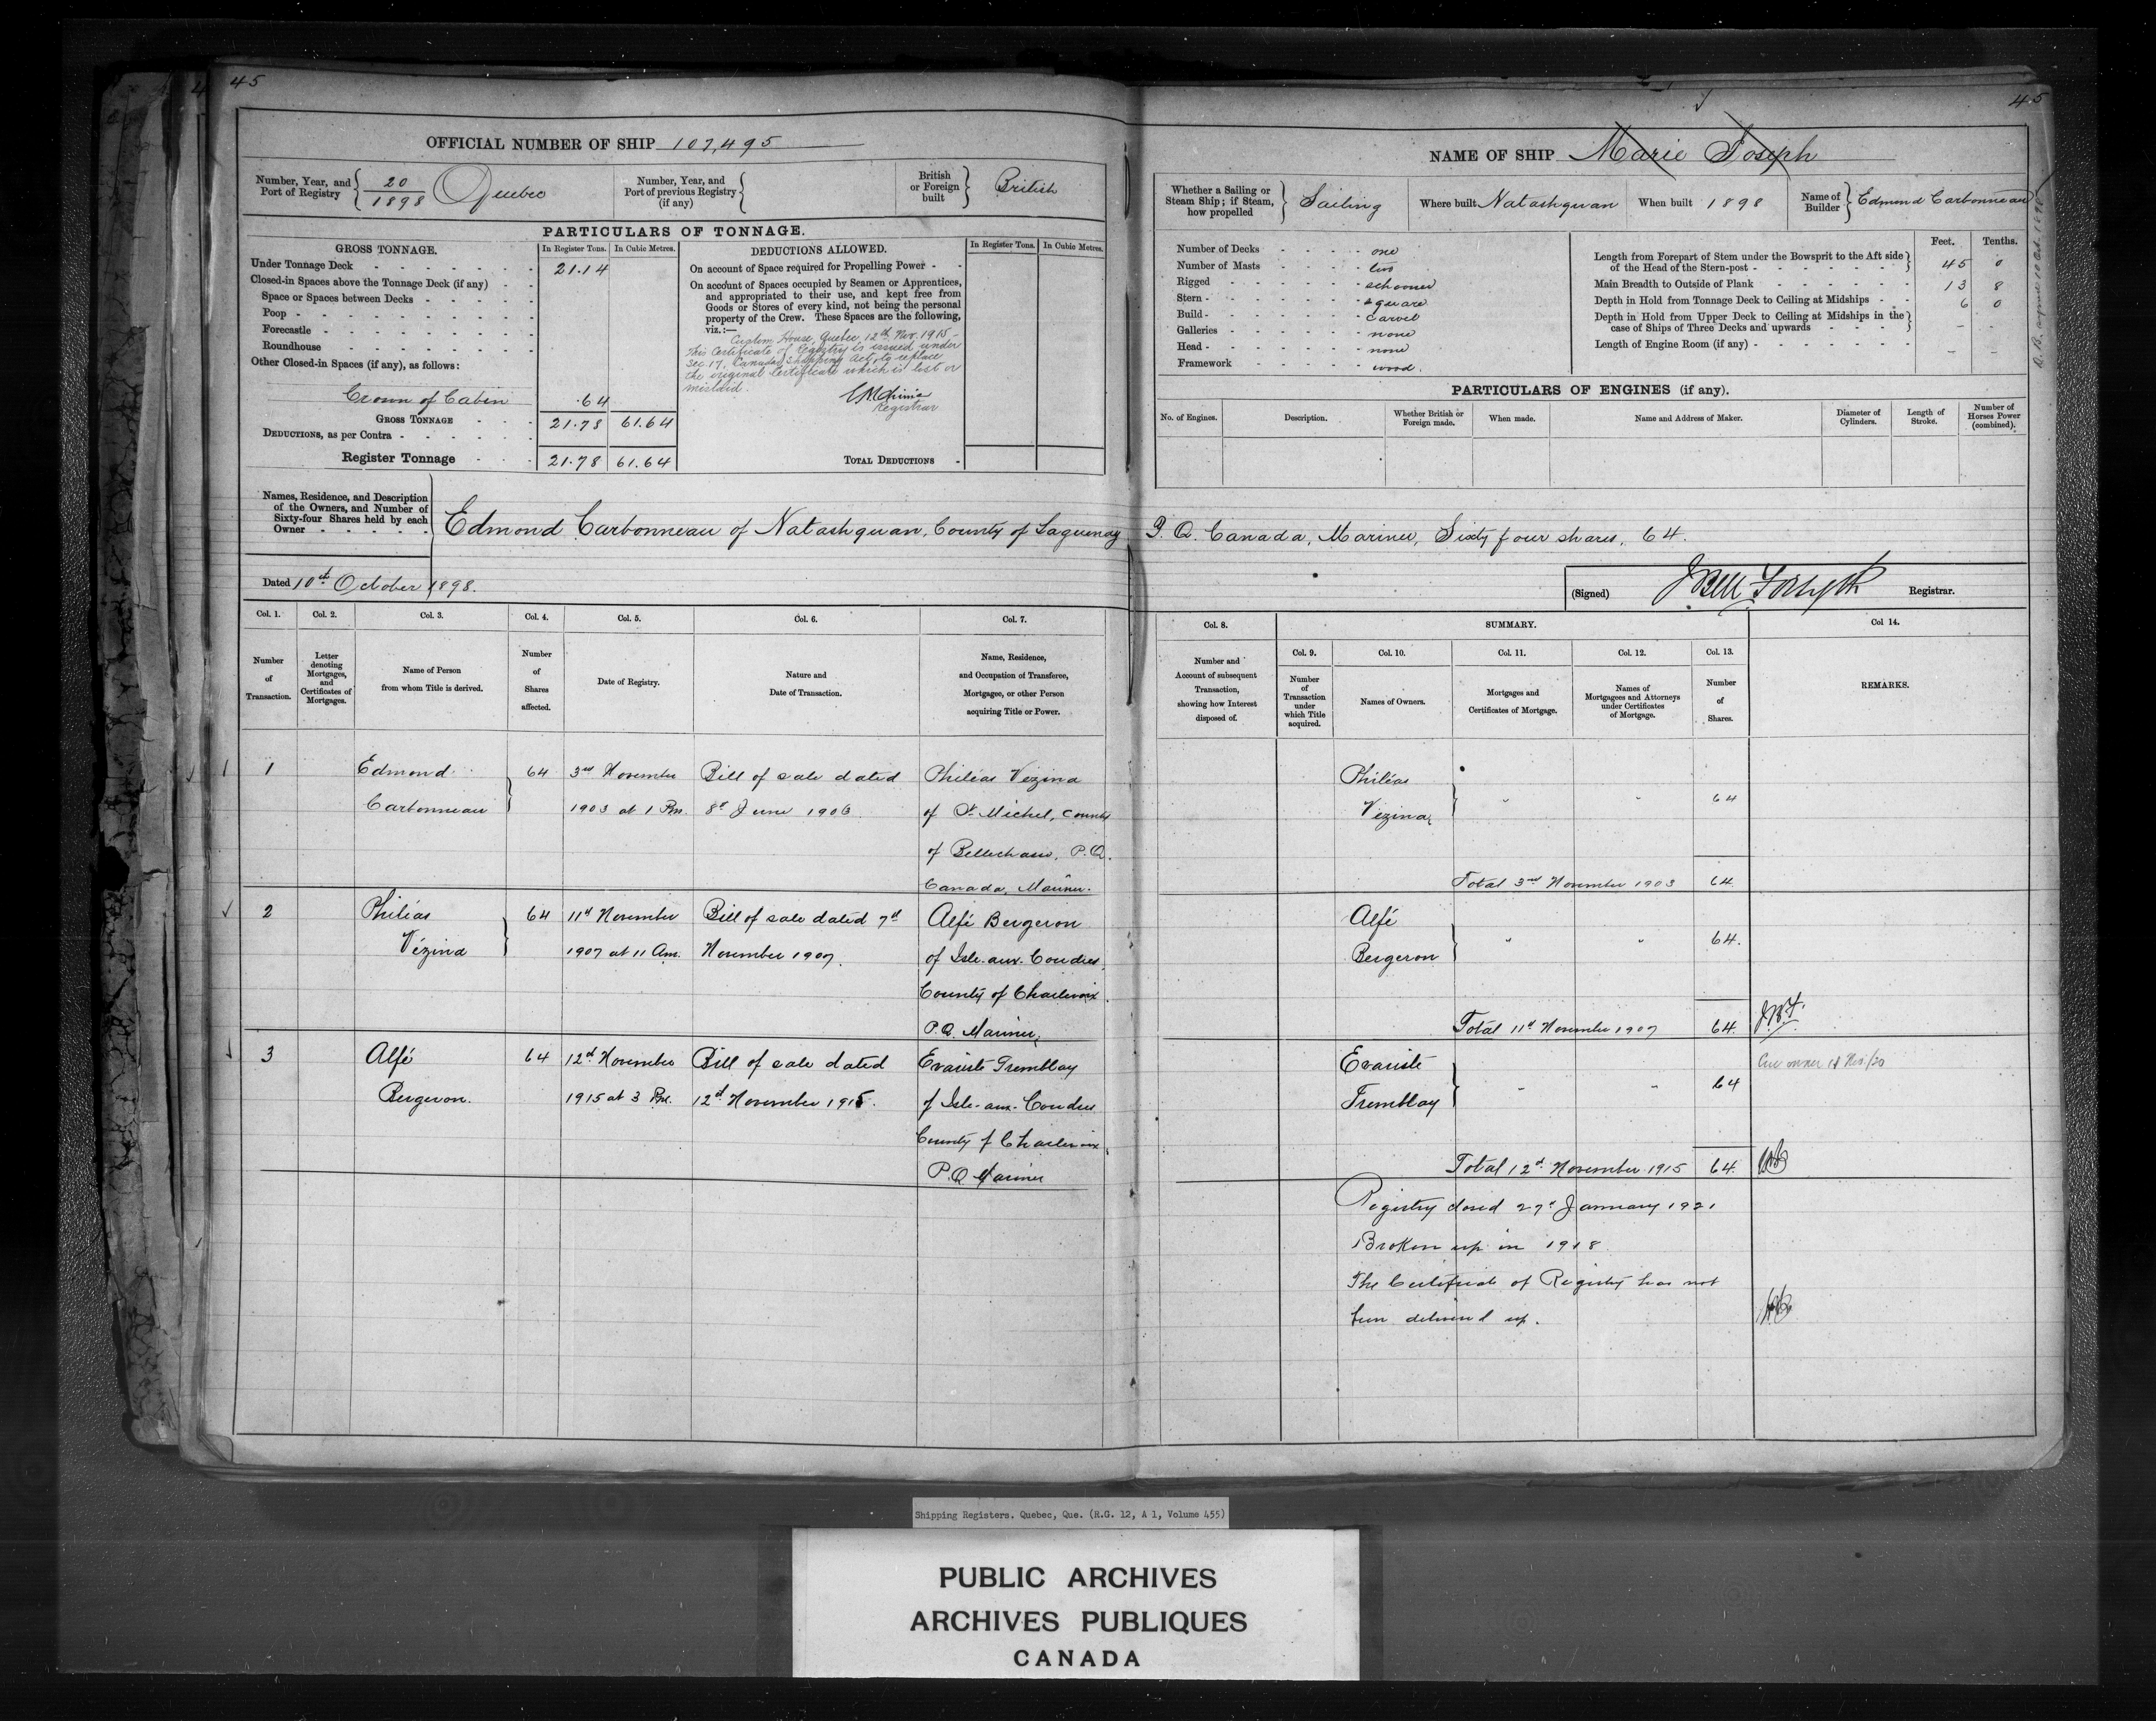 45
OFFICIAL NUMBER OF SHIP 107,495
Number, Year, and Port of Registry 20/1898 Quebec
Number, Year, and Port of previous Registry (if any)
British or Foreign built British
PARTICULARS OF TONNAGE.
GROSS TONNAGE. In Register Tons. In Cubic Metres.
Under Tonnage Deck 21.14
Closed-in Spaces above the Tonnage Deck (if any)
Space or Spaces between Decks
Poop
Forecastle
Roundhouse
Other Closed-in Spaces (if any), as follows:
Crown of Cabin .64
GROSS TONNAGE 21.78 61.64
DEDUCTIONS, as per Contra
Register Tonnage 21.78 61.64
DEDUCTIONS ALLOWED. In Register Tons. In Cubic Metres.
On account of Space required for Propelling Power
On account of Spaces occupied by Seamen or Apprentices,
and appropriated to their use, and kept free from
Goods or Stores of every kind, not being the personal
property of the Crew. These Spaces are the following,
viz.:—
Custom House, Quebec, 12th Nov. 1915 -
This Certificate of Registry is issued under
Sec 17, Canada Shipping Act, to replace
the original Certificate which is lost or
mislaid.
Registrar
TOTAL DEDUCTIONS
Names, Residence, and Description
of the Owners, and Number of
Sixty-four Shares held by each
Owner
Edmond Carbonneau of Natashquan, County of Saguenay
Dated 10th October 1898.
Col. 1. Col. 2. Col. 3. Col. 4. Col. 5. Col. 6. Col. 7.
Number of Transaction.
Letter denoting Mortgages, and Certificates of Mortgages.
Name of Person from whom Title is derived.
Number of Shares affected.
Date of Registry.
Nature and Date of Transaction.
Name, Residence, and Occupation of Transferee, Mortgagee, or other Person acquiring Title or Power.
1 Edmond 64 3rd November Bill of sale dated Philéas Vezina
Carbonneau 1903 at 1 Pm. 8th June 1906. of St. Michel, County
of Bellechasse, P.Q.
Canada, Mariner.
2 Philéas 64 11th November Bill of sale dated 7th Alfé Bergeron
Vézina 1907 at 11 Am. November 1907. of Isle-aux-Coudres,
County of Charlevoix.
P.Q. Mariner,
3 Alfé 64 12th November Bill of sale dated Evariste Tremblay
Bergeron. 1915 at 3 Pm. 12th November 1915. of Isle-aux-Coudres
County of Charlevoix,
P.Q. Mariner
45
NAME OF SHIP Marie Joseph
Whether a Sailing or Steam Ship; if Steam, how propelled Sailing
Where built Natashquan
When built 1898
Name of Builder Edmond Carbonneau
Number of Decks one
Number of Masts two
Rigged schooner
Stern square
Build carvel
Galleries none
Head none
Framework wood.
Feet. Tenths.
Length from Forepart of Stem under the Bowsprit to the Aft side
of the Head of the Stern-post 45 0
Main Breadth to Outside of Plank 13 8
Depth in Hold from Tonnage Deck to Ceiling at Midships 6 0
Depth in Hold from Upper Deck to Ceiling at Midships in the
case of Ships of Three Decks and upwards –
Length of Engine Room (if any) –
PARTICULARS OF ENGINES (if any).
No. of Engines.
Description.
Whether British or Foreign made.
When made.
Name and Address of Maker.
Diameter of Cylinders.
Length of Stroke.
Number of Horses Power (combined).
P.Q. Canada, Mariner, Sixty four shares, 64.
(Signed) J Bell Forsyth Registrar.
Col. 8. SUMMARY. Col 14.
Number and Account of subsequent Transaction, showing how Interest disposed of.
Col. 9. Col. 10. Col. 11. Col. 12. Col. 13.
Number of Transaction under which Title acquired.
Names of Owners.
Mortgages and Certificates of Mortgage.
Names of Mortgagees and Attorneys under Certificates of Mortgage.
Number of Shares.
REMARKS.
Philéas
Vezina, " " 64
Total 3rd November 1903 64
Alfé
Bergeron " " 64.
Total 11th November 1907 64. J.B.F.
Evariste
Tremblay " " 64
Total 12th November 1915 64.
Registry closed 27th January 1921
Broken up in 1918
The Certificate of Registry has not
been delivered up.
Shipping Registers. Quebec, Que. (R.G. 12, A 1, Volume 455)
PUBLIC ARCHIVES
ARCHIVES PUBLIQUES
CANADA